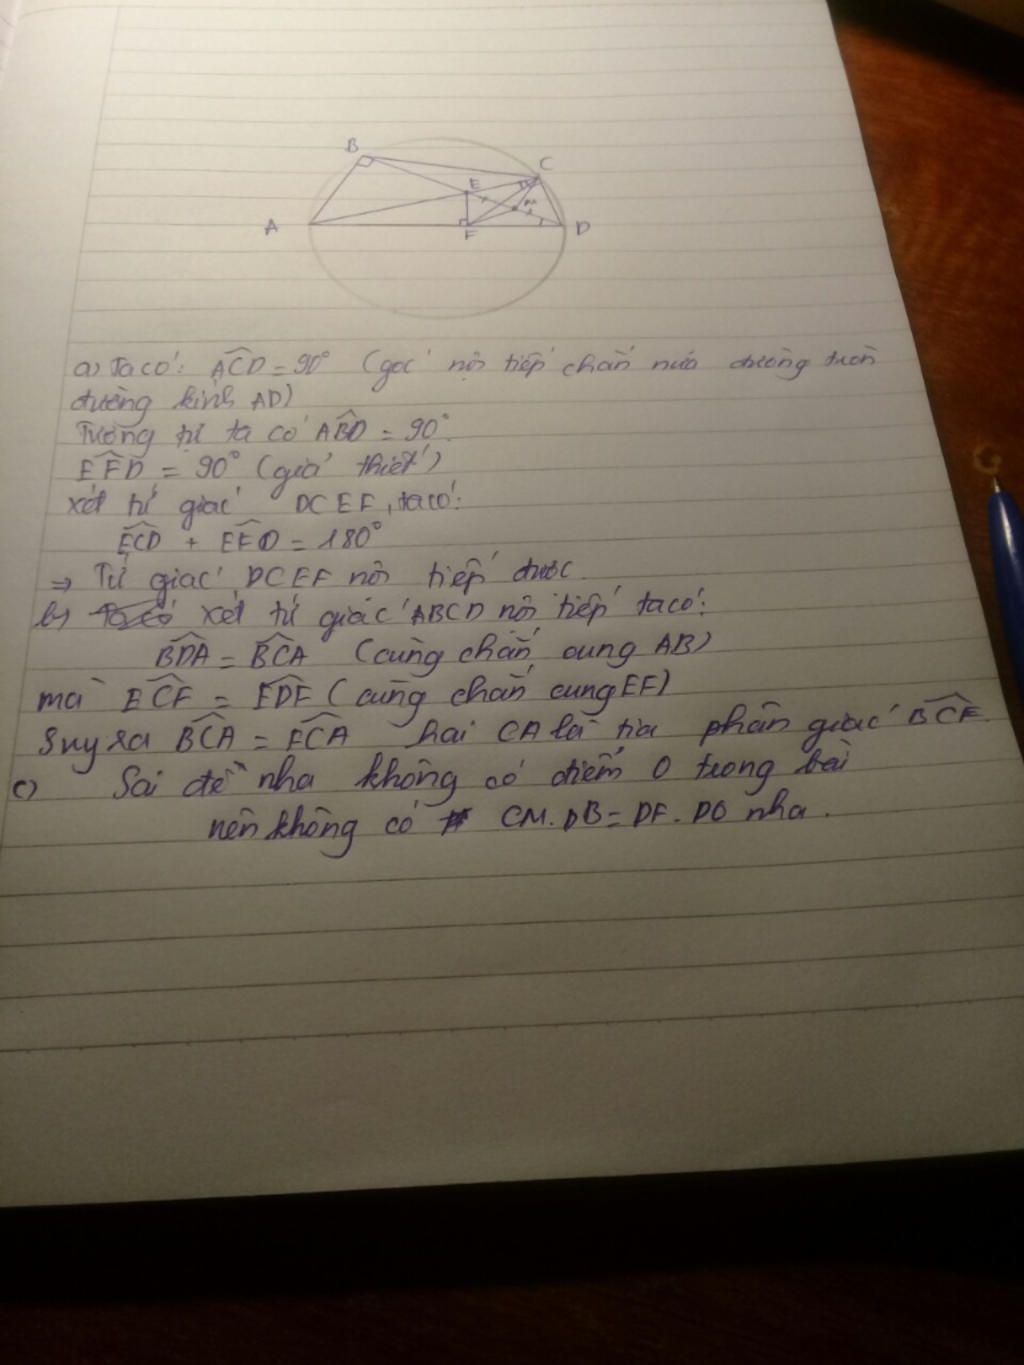 B
C
E
M
A
F
D
a) Ta có: ACD = 90° (góc nội tiếp chắn nửa đường tròn
đường kính AD)
Tương tự ta có ABD = 90°.
EFD = 90° (giả thiết)
xét tứ giác DCEF, ta có:
ECD + EFD = 180°
=> Tứ giác DCEF nội tiếp được.
b) Ta có xét tứ giác ABCD nội tiếp ta có:
BDA = BCA (cùng chắn cung AB)
mà ECF = EDF (cùng chắn cung EF)
Suy ra BCA = FCA hai CA là tia phân giác BCF.
c) Sai đề nha không có điểm O trong bài
nên không có CM.DB = DF.DO nha.